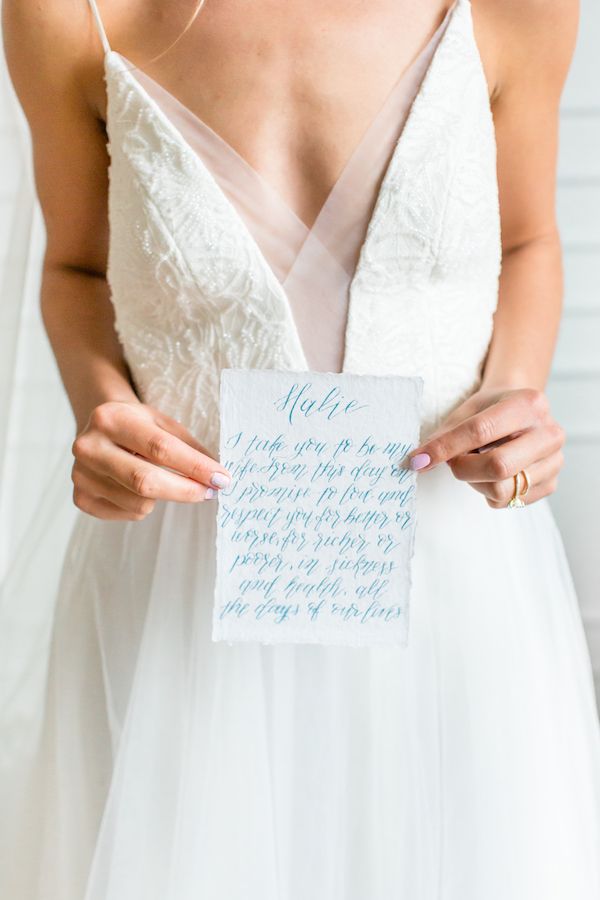 Halie
I take you to be my
wife from this day on
I promise to love and
respect you, for better or
worse, for richer or
poorer, in sickness
and health, all
the days of our lives